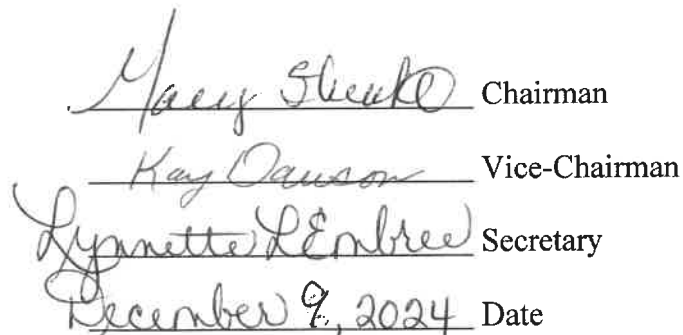 Chairman
Kay Dawson Vice-Chairman
Lynnette L Embree Secretary
December 9, 2024 Date